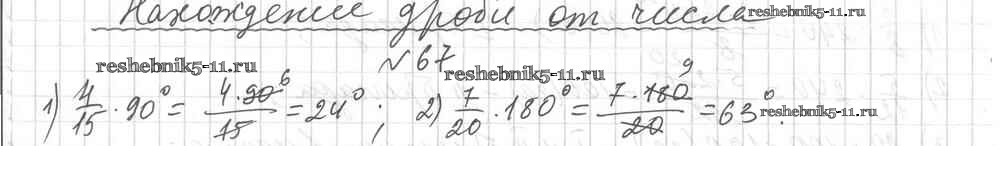 Нахождение дроби от числа reshebnik5-11.ru
№67
reshebnik5-11.ru reshebnik5-11.ru
1) 4/15 · 90° = 4·90 6/15 = 24°; 2) 7/20 · 180° = 7·180 9/20 = 63°. reshebnik5-11.ru